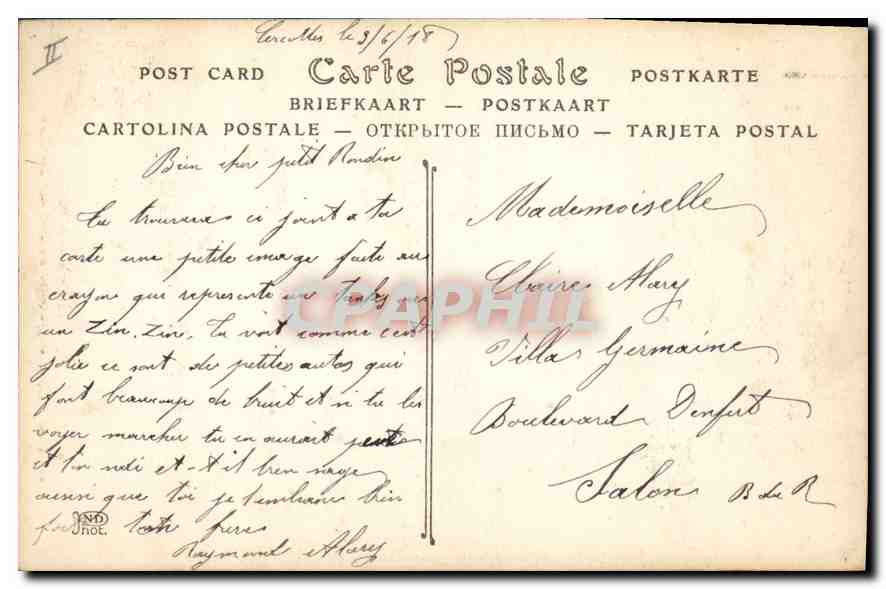 Cercottes le 3/6/18
II
POST CARD Carte Postale POSTKARTE
BRIEFKAART — POSTKAART
CARTOLINA POSTALE — ОТКРЫТОЕ ПИСЬМО — TARJETA POSTAL
Bien cher petit Roudin
Tu trouveras ci joint a ta
carte une petite image faite au
crayon qui represente un Tanks ou
un Zin. Zin. Tu voit comme c'est
jolie ce sont de petites autos qui
font beaucoup de bruit et si tu les
voyer marcher tu en aurait peur
et ton ndi et-t il bien sage
aussi que toi je t'embrasse bien
fort ton frere
Raymond Alary
ND
Phot.
Mademoiselle
Claire Alary
Villa Germaine
Boulevard Denfert
Salon B du R
CPAPHIL